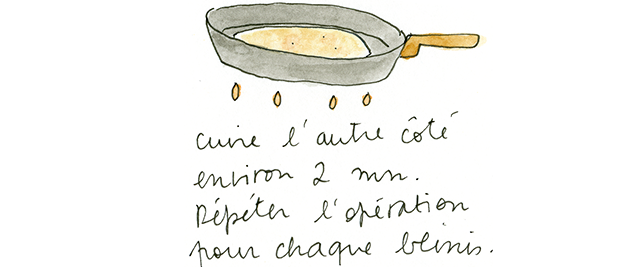 cuire l'autre côté
environ 2 mn.
Répéter l'opération
pour chaque blinis.